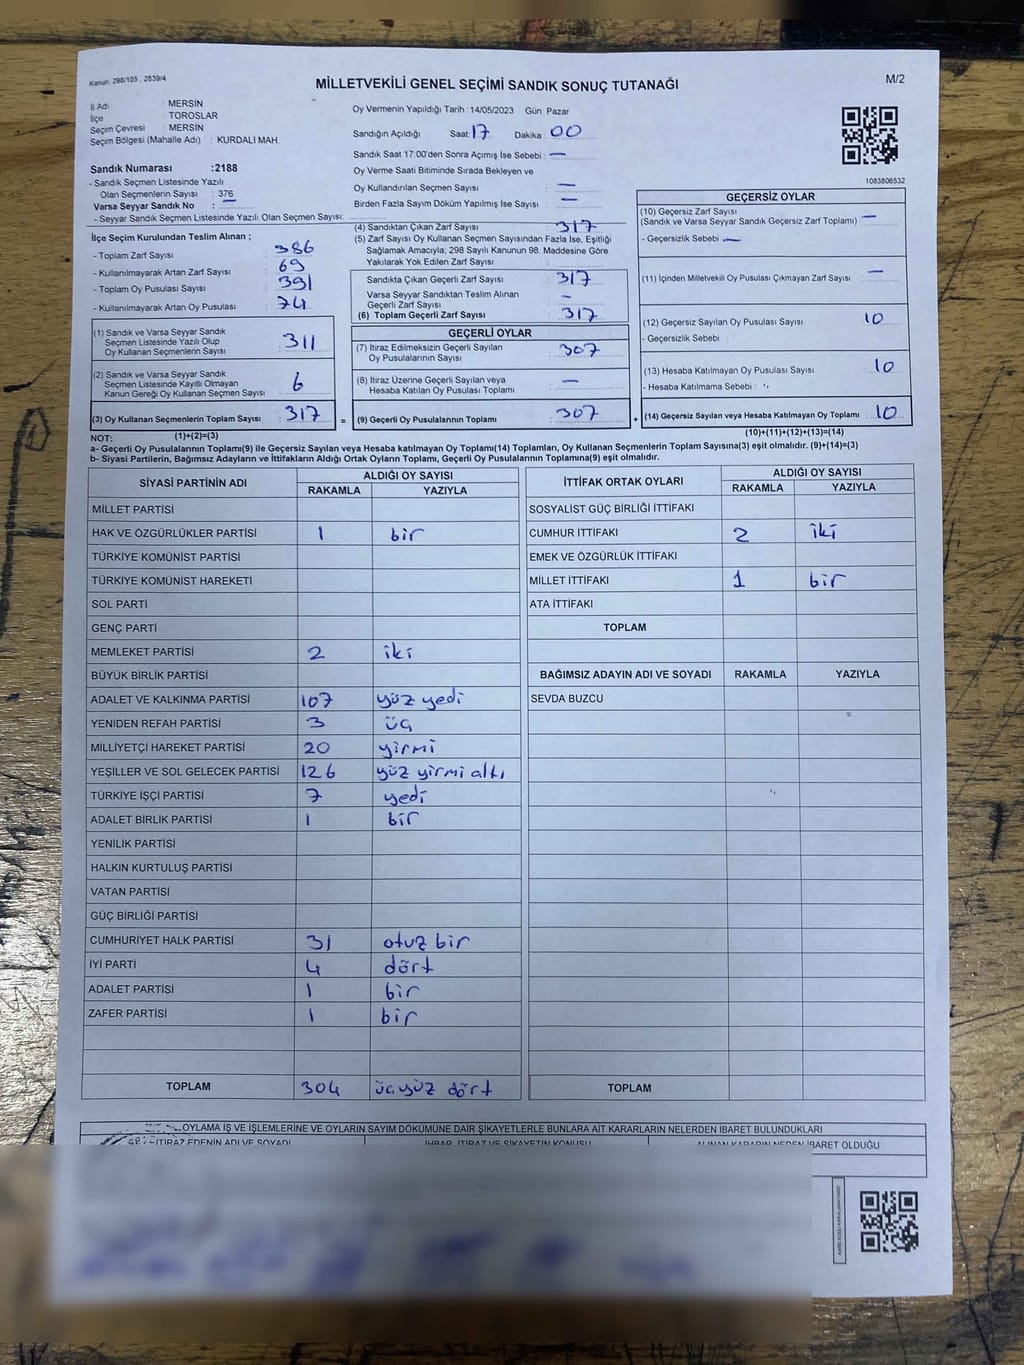 Kanun: 298/105 , 2839/4
MİLLETVEKİLİ GENEL SEÇİMİ SANDIK SONUÇ TUTANAĞI
M/2
İl Adı : MERSİN
İlçe TOROSLAR
Seçim Çevresi : MERSİN
Seçim Bölgesi (Mahalle Adı) : KURDALI MAH.
Oy Vermenin Yapıldığı Tarih :14/05/2023 Gün: Pazar
Sandığın Açıldığı Saat: 17 Dakika: 00
Sandık Saat 17:00'den Sonra Açımış İse Sebebi : —
Oy Verme Saati Bitiminde Sırada Bekleyen ve
Oy Kullandırılan Seçmen Sayısı : —
Birden Fazla Sayım Döküm Yapılmış İse Sayısı : —
1083806532
Sandık Numarası :2188
- Sandık Seçmen Listesinde Yazılı
Olan Seçmenlerin Sayısı : 376
Varsa Seyyar Sandık No : —
- Seyyar Sandık Seçmen Listesinde Yazılı Olan Seçmen Sayısı:
İlçe Seçim Kurulundan Teslim Alınan ;
- Toplam Zarf Sayısı : 386
- Kullanılmayarak Artan Zarf Sayısı : 69
- Toplam Oy Pusulası Sayısı : 391
- Kullanılmayarak Artan Oy Pusulası : 74
(1) Sandık ve Varsa Seyyar Sandık
Seçmen Listesinde Yazılı Olup
Oy Kullanan Seçmenlerin Sayısı : 311
(2) Sandık ve Varsa Seyyar Sandık
Seçmen Listesinde Kayıtlı Olmayan
Kanun Gereği Oy Kullanan Seçmen Sayısı : 6
(3) Oy Kullanan Seçmenlerin Toplam Sayısı : 317
(1)+(2)=(3)
(4) Sandıktan Çıkan Zarf Sayısı : 317
(5) Zarf Sayısı Oy Kullanan Seçmen Sayısından Fazla İse, Eşitliği
Sağlamak Amacıyla; 298 Sayılı Kanunun 98. Maddesine Göre
Yakılarak Yok Edilen Zarf Sayısı :
Sandıkta Çıkan Geçerli Zarf Sayısı : 317
Varsa Seyyar Sandıktan Teslim Alınan
Geçerli Zarf Sayısı : —
(6) Toplam Geçerli Zarf Sayısı : 317
GEÇERLİ OYLAR
(7) İtiraz Edilmeksizin Geçerli Sayılan
Oy Pusulalarının Sayısı : 307
(8) İtiraz Üzerine Geçerli Sayılan veya
Hesaba Katılan Oy Pusulası Toplamı : —
= (9) Geçerli Oy Pusulalarının Toplamı : 307
GEÇERSİZ OYLAR
(10) Geçersiz Zarf Sayısı
(Sandık ve Varsa Seyyar Sandık Geçersiz Zarf Toplamı) : —
- Geçersizlik Sebebi : —
(11) İçinden Milletvekili Oy Pusulası Çıkmayan Zarf Sayısı : —
(12) Geçersiz Sayılan Oy Pusulası Sayısı : 10
- Geçersizlik Sebebi :
(13) Hesaba Katılmayan Oy Pusulası Sayısı : 10
- Hesaba Katılmama Sebebi :
+ (14) Geçersiz Sayılan veya Hesaba Katılmayan Oy Toplamı : 10
(10)+(11)+(12)+(13)=(14)
NOT:
a- Geçerli Oy Pusulalarının Toplamı(9) ile Geçersiz Sayılan veya Hesaba katılmayan Oy Toplamı(14) Toplamları, Oy Kullanan Seçmenlerin Toplam Sayısına(3) eşit olmalıdır. (9)+(14)=(3)
b- Siyasi Partilerin, Bağımsız Adayların ve İttifakların Aldığı Ortak Oyların Toplamı, Geçerli Oy Pusulalarının Toplamına(9) eşit olmalıdır.
SİYASİ PARTİNİN ADI ALDIĞI OY SAYISI
RAKAMLA YAZIYLA
MİLLET PARTİSİ
HAK VE ÖZGÜRLÜKLER PARTİSİ 1 bir
TÜRKİYE KOMÜNİST PARTİSİ
TÜRKİYE KOMÜNİST HAREKETİ
SOL PARTİ
GENÇ PARTİ
MEMLEKET PARTİSİ 2 iki
BÜYÜK BİRLİK PARTİSİ
ADALET VE KALKINMA PARTİSİ 107 yüz yedi
YENİDEN REFAH PARTİSİ 3 üç
MİLLİYETÇİ HAREKET PARTİSİ 20 yirmi
YEŞİLLER VE SOL GELECEK PARTİSİ 126 yüz yirmi altı
TÜRKİYE İŞÇİ PARTİSİ 7 yedi
ADALET BİRLİK PARTİSİ 1 bir
YENİLİK PARTİSİ
HALKIN KURTULUŞ PARTİSİ
VATAN PARTİSİ
GÜÇ BİRLİĞİ PARTİSİ
CUMHURİYET HALK PARTİSİ 31 otuz bir
İYİ PARTİ 4 dört
ADALET PARTİSİ 1 bir
ZAFER PARTİSİ 1 bir
TOPLAM 304 üç yüz dört
İTTİFAK ORTAK OYLARI ALDIĞI OY SAYISI
RAKAMLA YAZIYLA
SOSYALİST GÜÇ BİRLİĞİ İTTİFAKI
CUMHUR İTTİFAKI 2 iki
EMEK VE ÖZGÜRLÜK İTTİFAKI
MİLLET İTTİFAKI 1 bir
ATA İTTİFAKI
TOPLAM
BAĞIMSIZ ADAYIN ADI VE SOYADI RAKAMLA YAZIYLA
SEVDA BUZCU
TOPLAM
OYLAMA İŞ VE İŞLEMLERİNE VE OYLARIN SAYIM DÖKÜMÜNE DAİR ŞİKAYETLERLE BUNLARA AİT KARARLARIN NELERDEN İBARET BULUNDUKLARI
İTİRAZ EDENİN ADI VE SOYADI İHBAR, İTİRAZ VE ŞİKAYETİN KONUSU ALINAN KARARIN NEDEN İBARET OLDUĞU